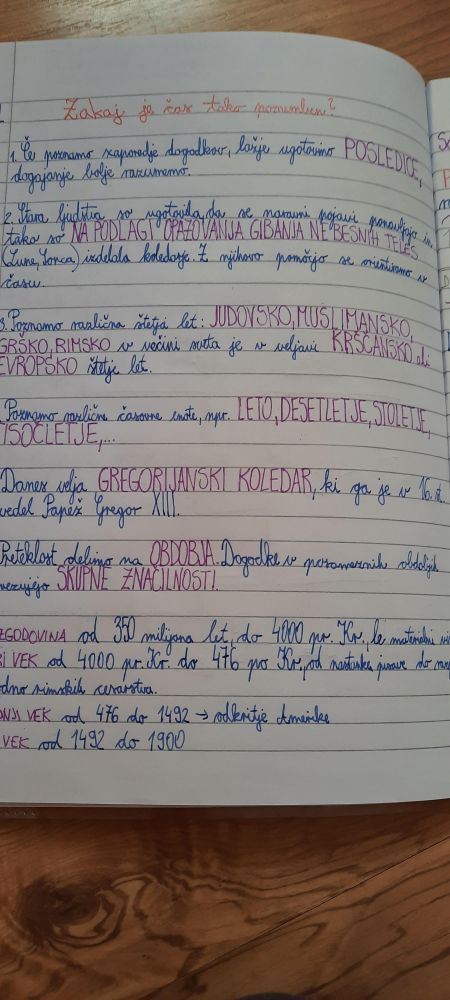 Zakaj je čas tako pomemben?
1. Če poznamo zaporedje dogodkov, lažje ugotovimo POSLEDICE,
dogajanje bolje razumemo.
2. Stara ljudstva so ugotovila, da se naravni pojavi ponavljajo in
tako so NA PODLAGI OPAZOVANJA GIBANJA NEBESNIH TELES
(Lune, Sonca) izdelala koledarje. Z njihovo pomočjo se orientiramo v
času.
3. Poznamo različna štetja let: JUDOVSKO, MUSLIMANSKO,
GRŠKO, RIMSKO v večini sveta je v veljavi KRŠČANSKO ali
EVROPSKO štetje let.
Poznamo različne časovne enote, npr. LETO, DESETLETJE, STOLETJE,
TISOČLETJE,...
Danes velja GREGORIJANSKI KOLEDAR, ki ga je v 16. st.
vedel Papež Gregor XIII.
Preteklost delimo na OBDOBJA. Dogodke v posameznih obdobjih
vezujejo SKUPNE ZNAČILNOSTI.
ZGODOVINA od 350 milijona let, do 4000 pr. Kr., le materialni
RI VEK od 4000 pr. Kr. do 476 po Kr., od nastanka pisave do
dno rimskih cerarstva.
DNJI VEK od 476 do 1492 → odkritje Amerike
VEK od 1492 do 1900